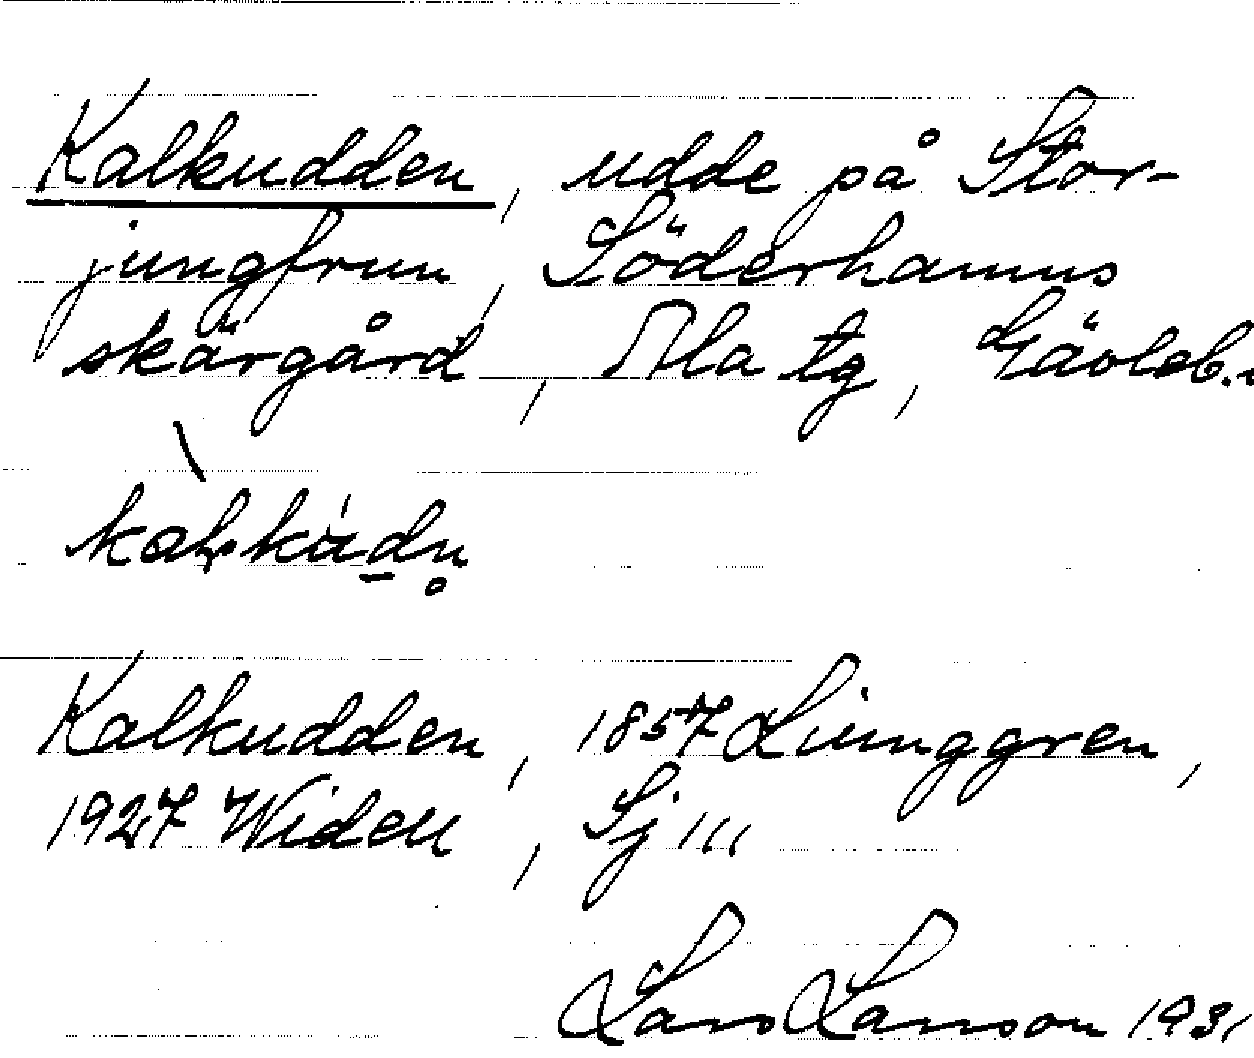 Kalkudden, udde på Stor-
jungfrun, Söderhamns
skärgård, Ala tg, Gävleb.
Kalkudden, 1857 Ljunggren,
1927 Widell, Sj 111
Lars Larsson 1931